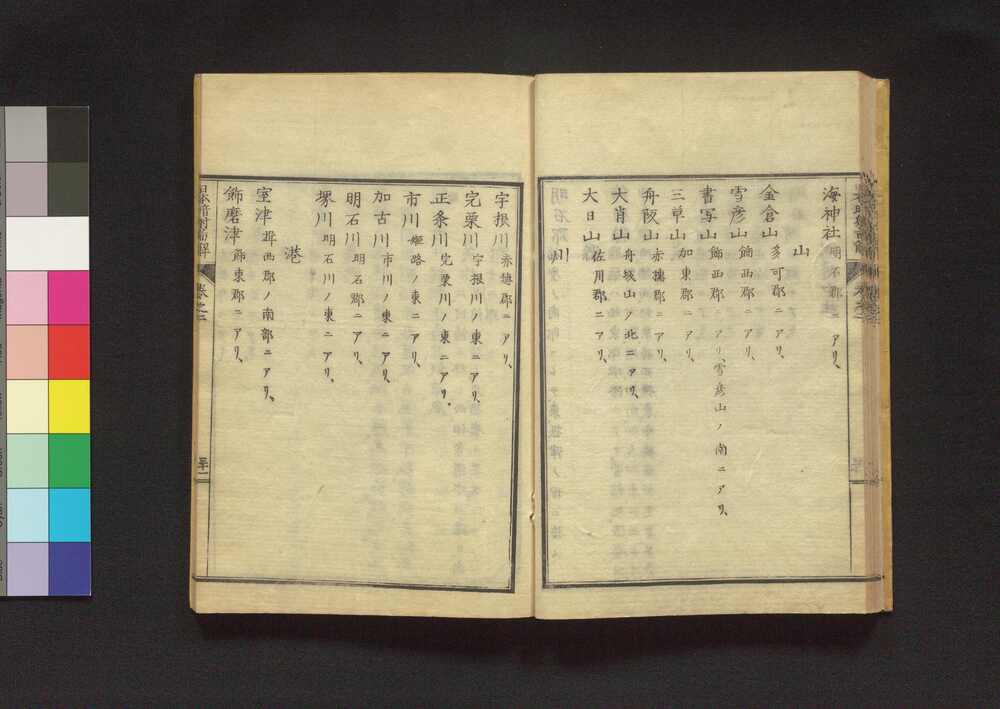 海神社 明石郡ニアリ、
山
金倉山 多可郡ニアリ、
雪彦山 餝西郡ニアリ、
書写山 餝西郡ニアリ、雪彦山ノ南ニアリ、
三草山 加東郡ニアリ、
舟阪山 赤穗郡ニアリ、
大肖山 舟城山ノ北ニアリ、
大日山 佐用郡ニアリ、
川
宇根川 赤穗郡ニアリ、
宍粟川 宇根川ノ東ニアリ、
正条川 宍粟川ノ東ニアリ、
市川 姫路ノ東ニアリ、
加古川 市川ノ東ニアリ、
明石川 明石郡ニアリ、
堺川 明石川ノ東ニアリ、
港
室津 揖西郡ノ南部ニアリ、
餝磨津 餝東郡ニアリ、
卷之二
三十二